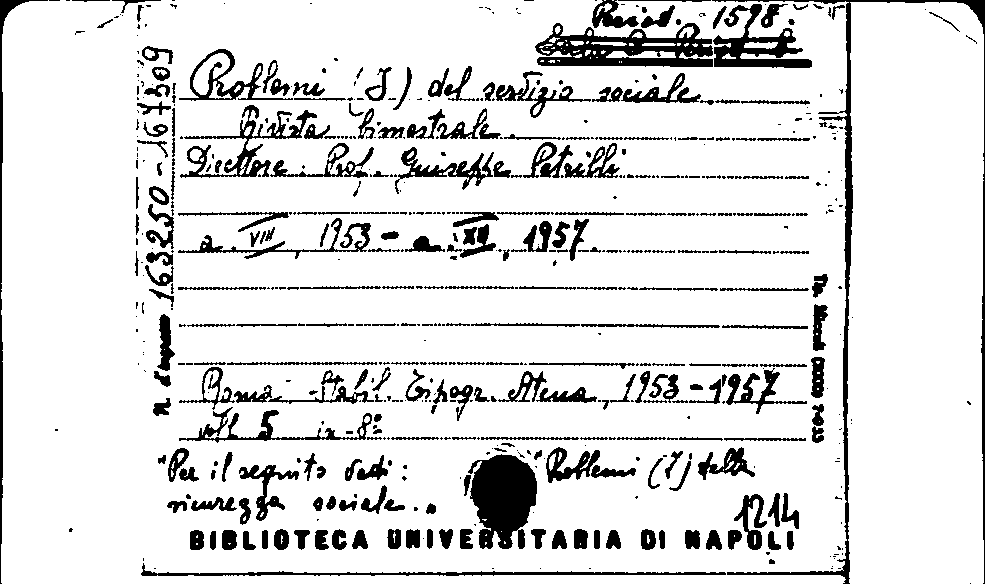 Period. 1598.
Sala B. Period. B
Problemi (I) del servizio sociale.
Rivista bimestrale.
Direttore: Prof. Giuseppe Petrilli.
a. VIII, 1953 - a. XII, 1957.
Roma Stabil. Tipogr. Atena, 1953-1957
voll 5 in-8º
"Per il seguito vedi: "Problemi (I) della
sicurezza sociale.„
1214
BIBLIOTECA UNIVERSITARIA DI NAPOLI
N. d'ingresso 163250-167309